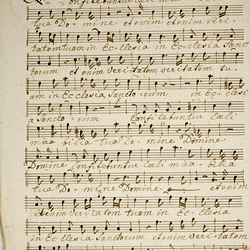 Confitebuntur cæli mira
tua Domine etenim etenim veri-
tatem tuam in Ecclesia in Ecclesia Sanc
torum etenim veritatem tu-
am in Ecclesia Sanctorum in Ecclesi
a Sanctorum Confitebuntur Cæli
mirabilia tua Domine Domine
Domine Confitebuntur cæli mirabilia
tua Domine Domine
etenim veritatem tuam in Ecclesia
Ecclesia Sanctorum etenim veritatem